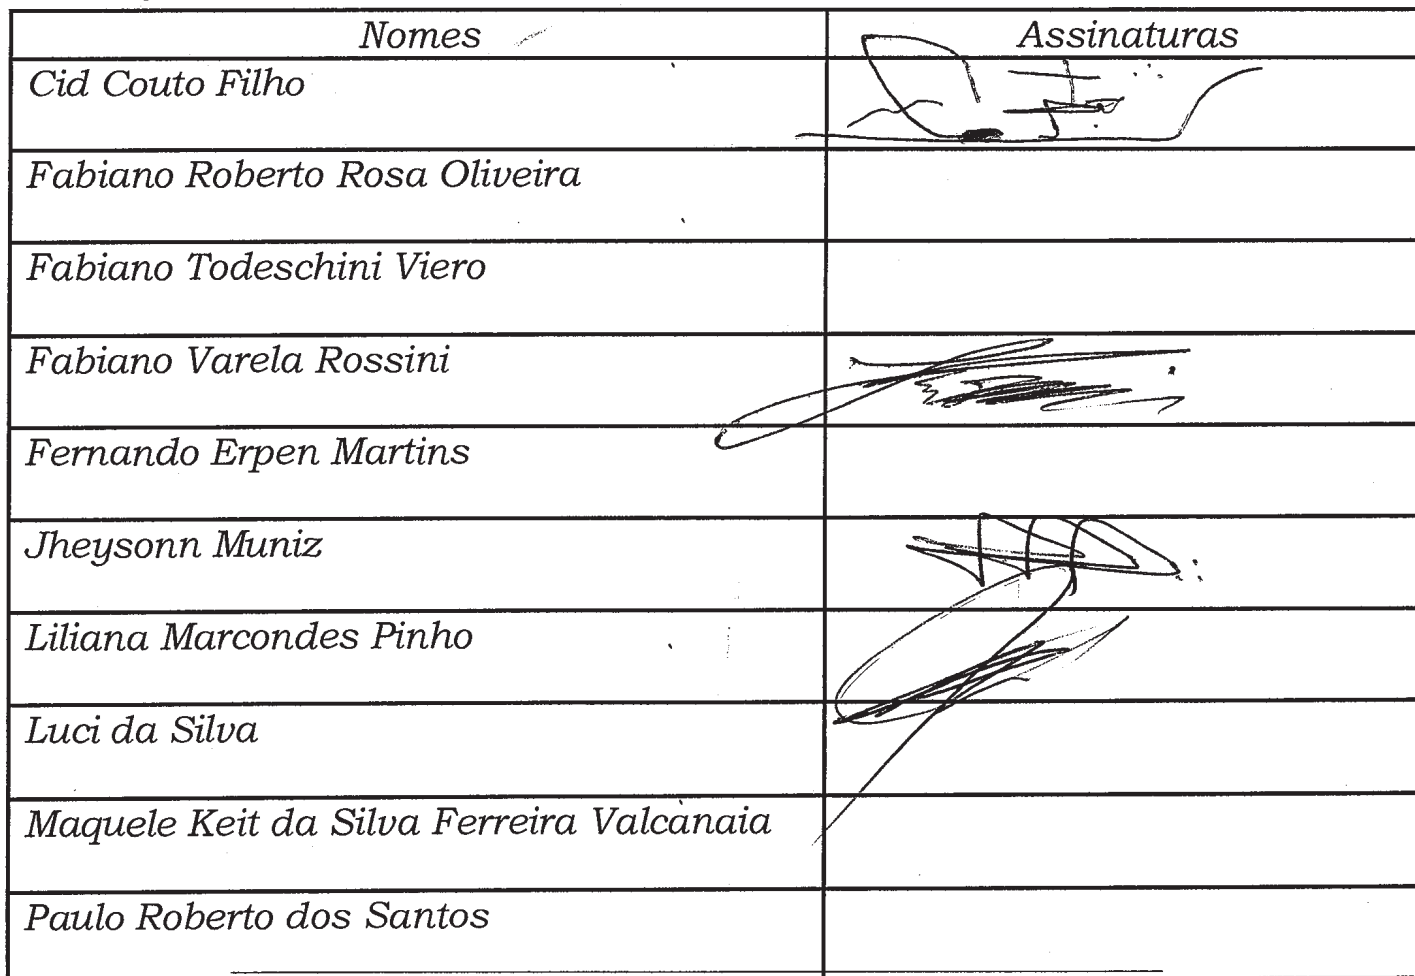 Nomes Assinaturas
Cid Couto Filho
Fabiano Roberto Rosa Oliveira
Fabiano Todeschini Viero
Fabiano Varela Rossini
Fernando Erpen Martins
Jheysonn Muniz
Liliana Marcondes Pinho
Luci da Silva
Maquele Keit da Silva Ferreira Valcanaia
Paulo Roberto dos Santos